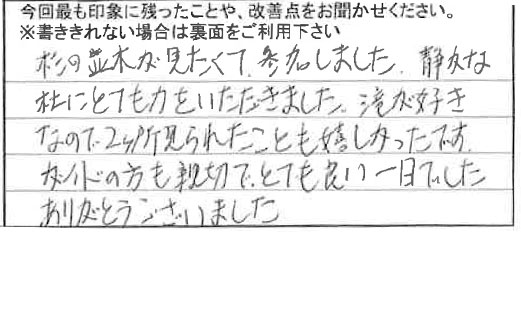 今回最も印象に残ったことや、改善点をお聞かせください。
※書ききれない場合は裏面をご利用下さい
杉の並木が見たくて、参加しました。静かな
杜にとても力をいただきました。滝が好き
なので2ヶ所見られたことも嬉しかったです。
ガイドの方も親切で、とても良い一日でした
ありがとうございました